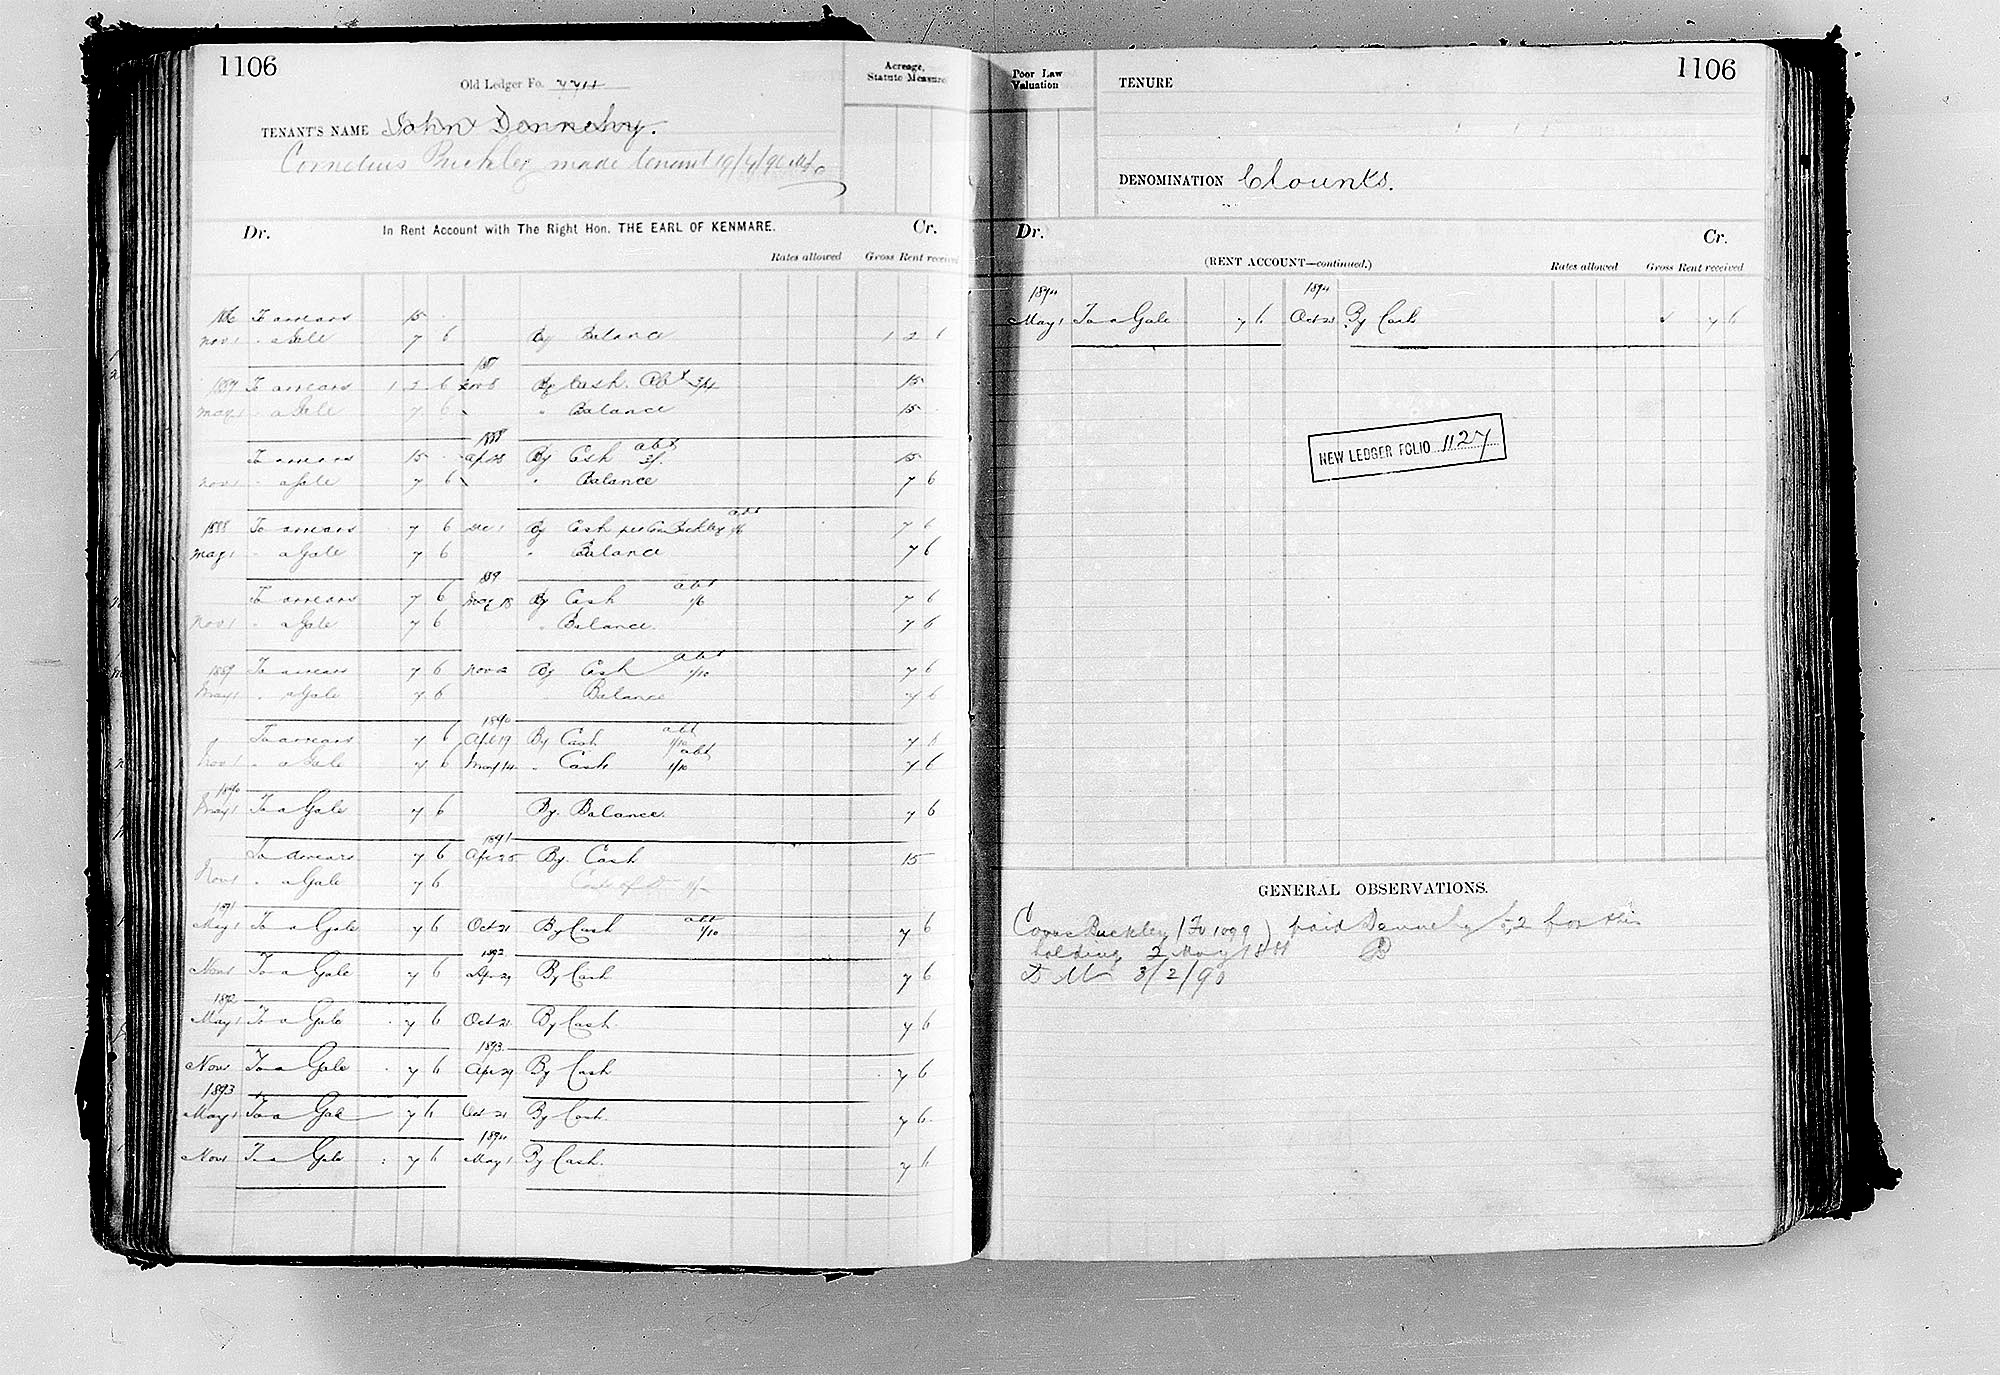 1106
Old Ledger Fo.
Acreage, Statute Measure
TENANT'S NAME John Dennehy.
Cornelius Buckley made tenant 19/4/90
Dr. In Rent Account with The Right Hon. THE EARL OF KENMARE. Cr.
Rates allowed Gross Rent received
1886 To arrears 15
Nov 1 " a Gale 7 6 By Balance 1 2 6
1887
1887 To arrears 1 2 6 By Cash. 15
May 1 " a Gale 7 6 " Balance 15
1888
To arrears 15 Apl 28 By Cash abt 3/. 15
Nov 1 " a Gale 7 6 " Balance 7 6
abt
1888 To arrears 7 6 Dec 1 By Cash per Con Buckley 1/6 7 6
May 1 " a Gale 7 6 " Balance 7 6
1889 abt
To arrears 7 6 May 18 By Cash 1/6 7 6
Nov 1 " a Gale 7 6 " Balance. 7 6
abt
1889 To arrears 7 6 Nov 2 By Cash 1/10 7 6
May 1 " a Gale 7 6 " Balance 7 6
1890 abt
" To arrears 7 6 Apl 19 By Cash 1/10 7 6
abt
Nov 1 " a Gale 7 6 May 14 " Cash 1/10 7 6
1890
May 1 To a Gale 7 6 By Balance. 7 6
1891
To arrears 7 6 Apr 25 By Cash 15
Nov 1 " a Gale 7 6
1891 abt
May 1 To a Gale 7 6 Oct 21 By Cash 1/10 7 6
1892
Nov 1 To a Gale 7 6 Apr 29 By Cash 7 6
1892
May 1 To a Gale 7 6 Oct 21 By Cash. 7 6
1893
Nov 1 To a Gale 7 6 Apr 29 By Cash 7 6
1893
May 1 To a Gale 7 6 Oct 21 By Cash. 7 6
1894
Nov 1 To a Gale 7 6 May 1 By Cash. 7 6
Poor Law Valuation
TENURE 1106
DENOMINATION Clounts.
Dr. Cr.
(RENT ACCOUNT—continued.) Rates allowed Gross Rent received
1894 1894
May 1 To a Gale 7 6 Oct 21 By Cash 7 6
NEW LEDGER FOLIO 1127
GENERAL OBSERVATIONS.
Corns Buckley (Fo 1099) paid Dennehy £52 for this
holding 2 May
3/2/90